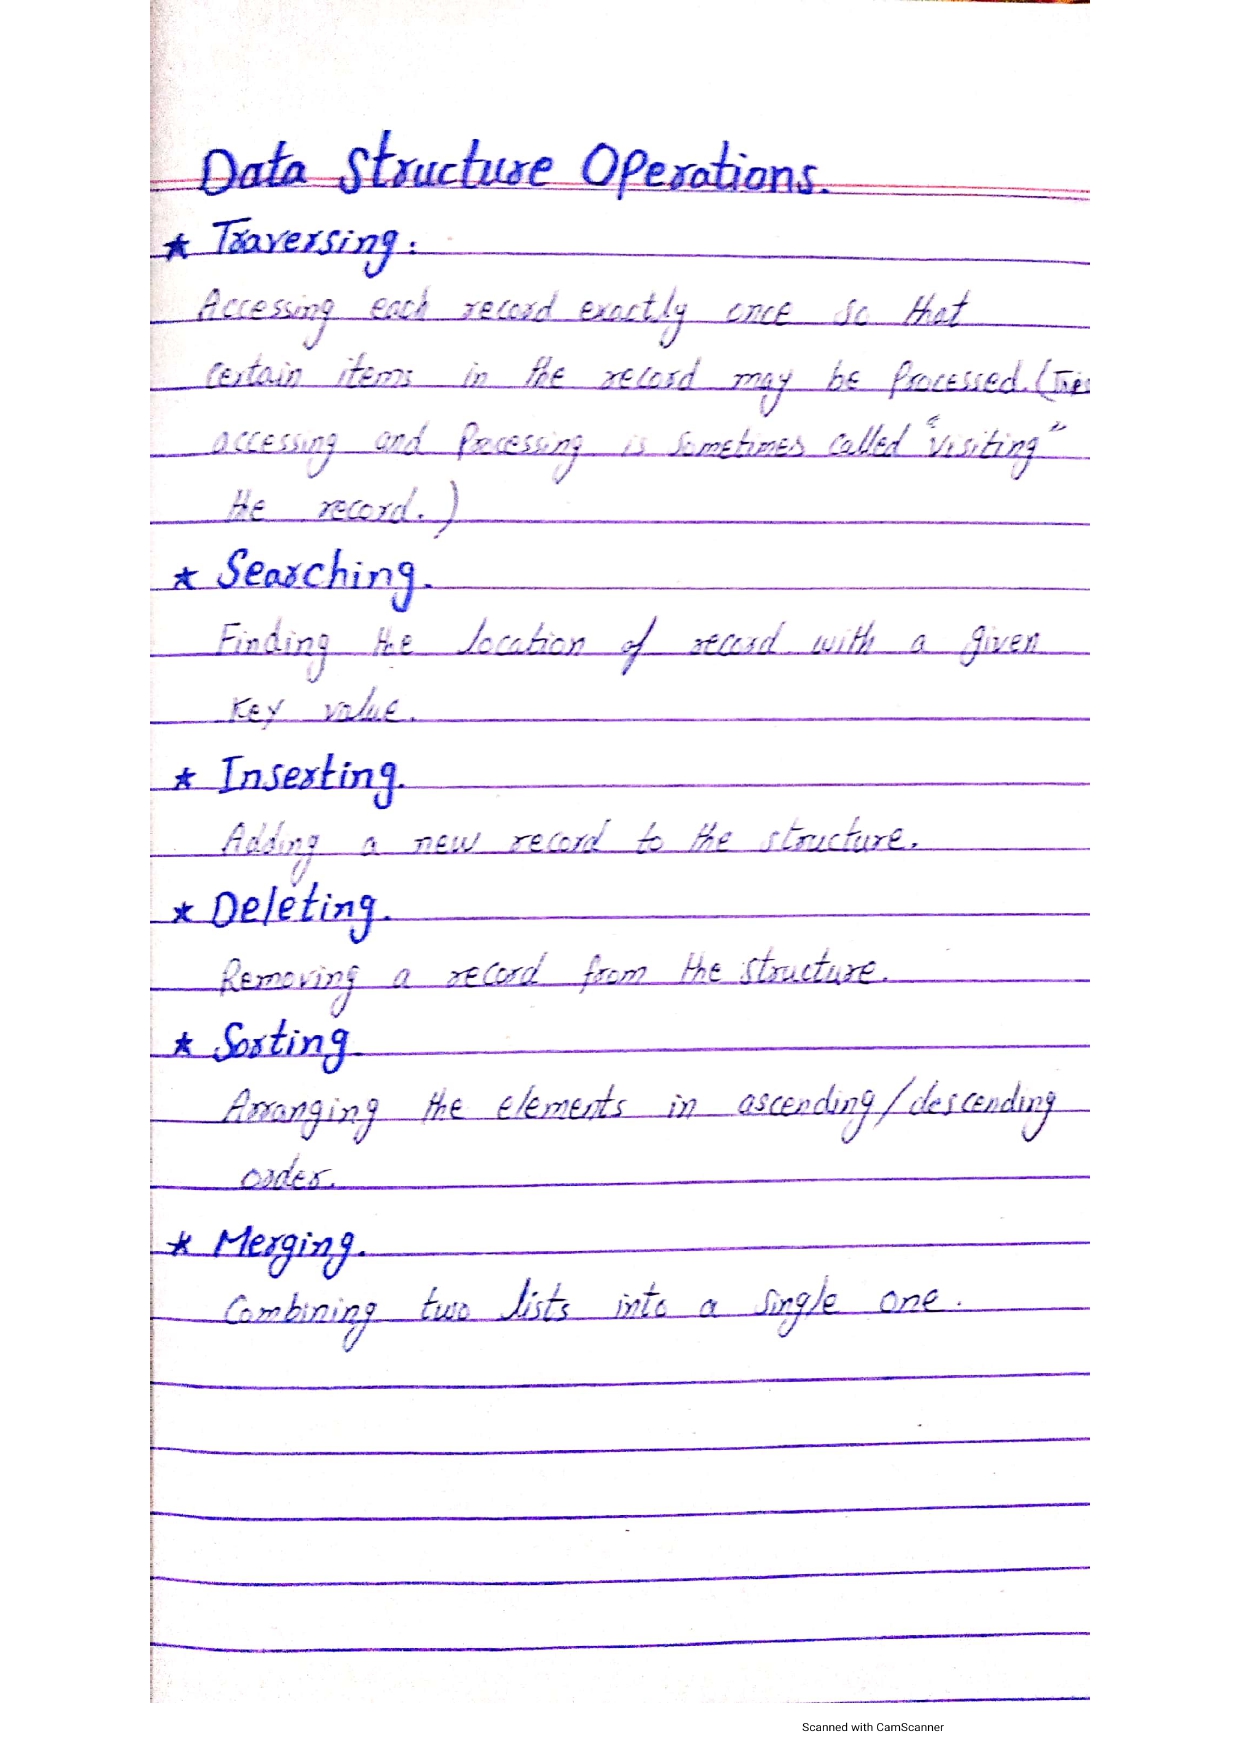 Data Structure Operations.
★ Traversing:
Accessing each record exactly once so that
certain items in the record may be Processed. (This
accessing and Processing is sometimes called "visiting"
the record.)
★ Searching.
Finding the location of record with a given
Key value.
★ Inserting.
Adding a new record to the structure.
★ Deleting.
Removing a record from the structure.
★ Sorting
Arranging the elements in ascending/descending
order.
★ Merging.
Combining two lists into a single one.
Scanned with CamScanner